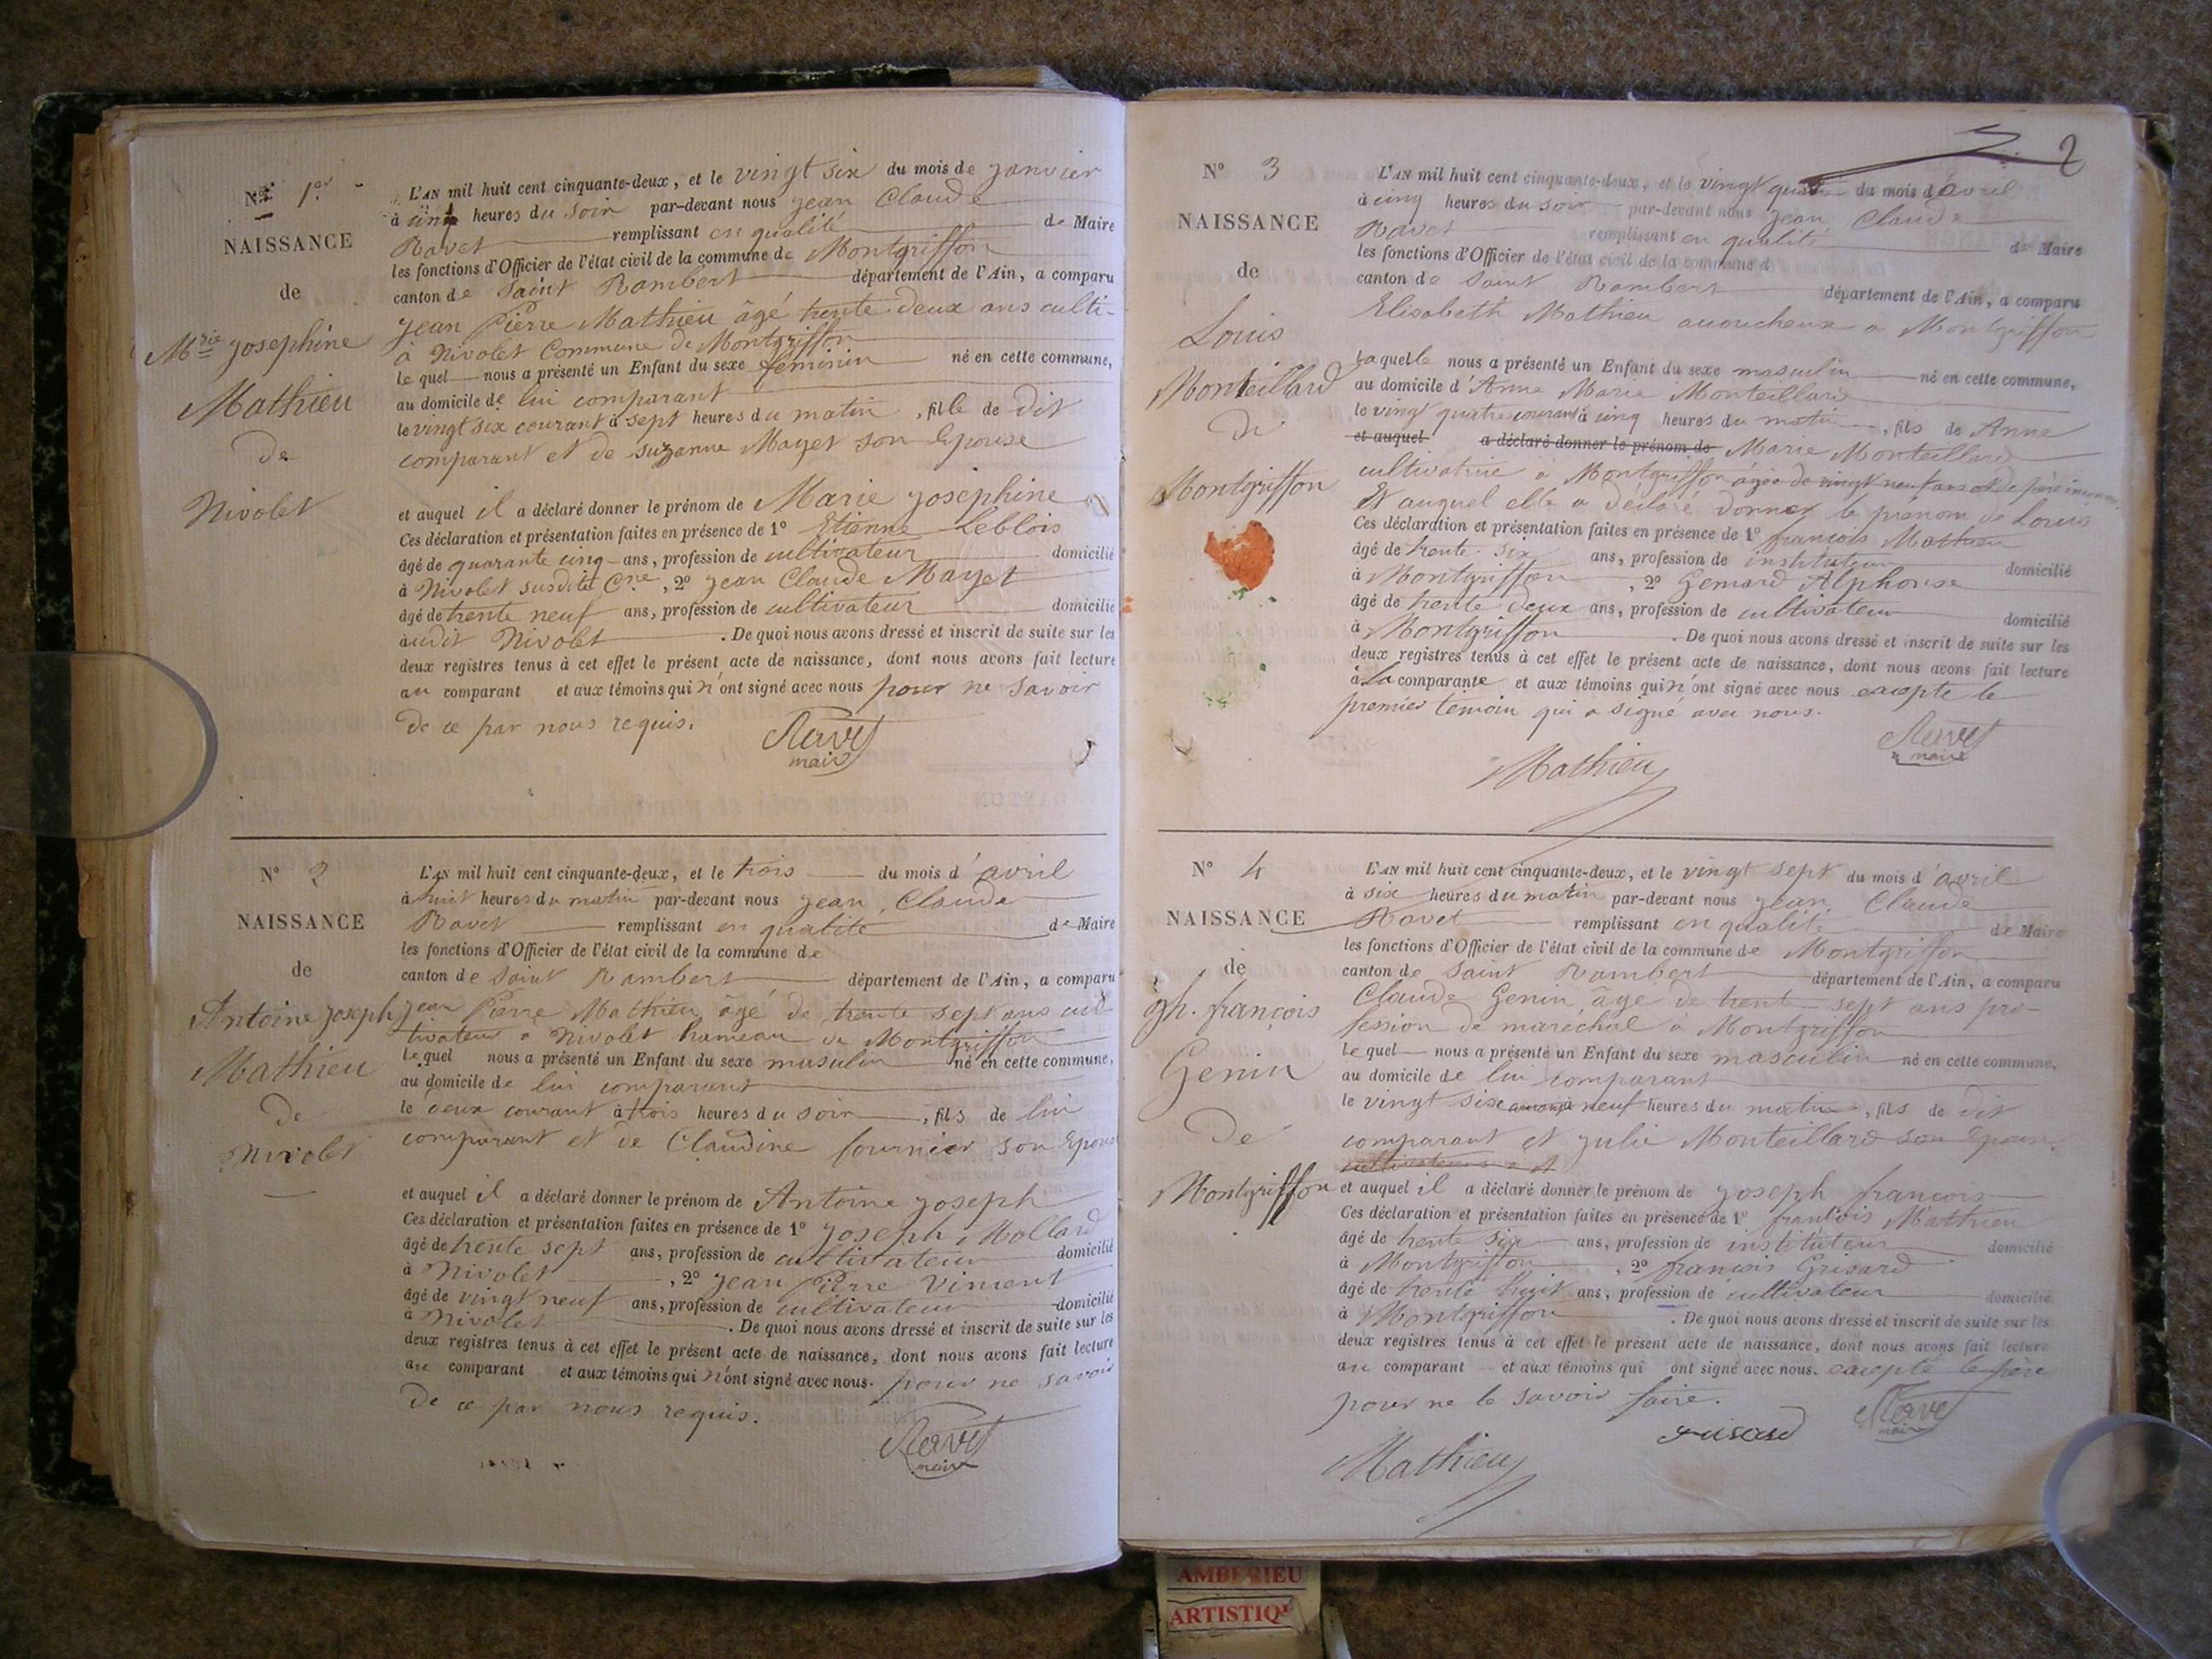 N° 1er
NAISSANCE
de
Mrie Josephine
Mathieu
de
Nivolet
L'AN mil huit cent cinquante-deux, et le vingt six du mois de janvier
à cinq heures du soir par-devant nous jean Claude
Ravet remplissant en qualité de Maire
les fonctions d'Officier de l'état civil de la commune de Montgriffon
canton de Saint Rambert département de l'Ain, a comparu
jean Pierre Mathieu âgé trente deux ans culti-
à Nivolet Commune de Montgriffon
le quel nous a présenté un Enfant du sexe féminin né en cette commune,
au domicile de lui comparant
le vingt six courant à sept heures du matin, fille de dit
comparant et de suzanne Mayet son Epouse
et auquel il a déclaré donner le prénom de Marie josephine
Ces déclaration et présentation faites en présence de 1° Etienne Leblois
âgé de quarante cinq ans, profession de cultivateur domicilié
à Nivolet susdite Cne, 2° jean Claude Mayet
âgé de trente neuf ans, profession de cultivateur domicilié
audit Nivolet. De quoi nous avons dressé et inscrit de suite sur les
deux registres tenus à cet effet le présent acte de naissance, dont nous avons fait lecture
au comparant et aux témoins qui n'ont signé avec nous pour ne savoir
de ce par nous requis.
Ravet
maire
N° 2
NAISSANCE
de
Antoine joseph
Mathieu
de
Nivolet
L'AN mil huit cent cinquante-deux, et le trois du mois d'avril
à huit heures du matin par-devant nous jean Claude
Ravet remplissant en qualité de Maire
les fonctions d'Officier de l'état civil de la commune de
canton de Saint Rambert département de l'Ain, a comparu
jean Pierre Mathieu âgé de trente sept ans cul
tivateur à Nivolet hameau de Montgriffon
le quel nous a présenté un Enfant du sexe masculin né en cette commune,
au domicile de lui comparant
le deux courant à trois heures du soir, fils de lui
comparant et de Claudine fournier son Epouse
et auquel il a déclaré donner le prénom de Antoine joseph
Ces déclaration et présentation faites en présence de 1° joseph Mollard
âgé de trente sept ans, profession de cultivateur domicilié
à Nivolet, 2° jean Pierre Vincent
âgé de vingt neuf ans, profession de cultivateur domicilié
à Nivolet. De quoi nous avons dressé et inscrit de suite sur les
deux registres tenus à cet effet le présent acte de naissance, dont nous avons fait lecture
au comparant et aux témoins qui n'ont signé avec nous. pour ne savoir
de ce par nous requis.
Ravet
maire
2
N° 3
NAISSANCE
de
Louis
Monteillard
de
Montgriffon
L'AN mil huit cent cinquante-deux, et le vingt quatre du mois d'avril
à cinq heures du soir par-devant nous jean Claude
Ravet remplissant en qualité de Maire
les fonctions d'Officier de l'état civil de la commune d
canton de Saint Rambert département de l'Ain, a comparu
Elisabeth Mathieu accoucheuse a Montgriffon
laquelle nous a présenté un Enfant du sexe masculin né en cette commune,
au domicile d'Anne Marie Monteillard
le vingt quatre courant à cinq heures du matin, fils de Anne
et auquel a déclaré donner le prénom de Marie Monteillard
cultivatrice à Montgriffon âgée de vingt neuf ans et de père inconnu
Et auquel elle a déclaré donner le prénom de Louis
Ces déclaration et présentation faites en présence de 1° francois Mathieu
âgé de trente six ans, profession de instituteur domicilié
à Montgriffon, 2° Gemard Alphonse
âgé de trente deux ans, profession de cultivateur domicilié
à Montgriffon. De quoi nous avons dressé et inscrit de suite sur les
deux registres tenus à cet effet le présent acte de naissance, dont nous avons fait lecture
à la comparante et aux témoins qui n'ont signé avec nous excepte le
premier témoin qui a signé avec nous.
Ravet
maire
Mathieu
N° 4
NAISSANCE
de
Jh. françois
Genin
de
Montgriffon
L'AN mil huit cent cinquante-deux, et le vingt sept du mois d'avril
à six heures du matin par-devant nous jean Claude
Ravet remplissant en qualité de Maire
les fonctions d'Officier de l'état civil de la commune de Montgriffon
canton de Saint Rambert département de l'Ain, a comparu
Claude Genin âgé de trente sept ans pro-
fession de maréchal à Montgriffon
le quel nous a présenté un Enfant du sexe masculin né en cette commune,
au domicile de lui comparant
le vingt six courant à neuf heures du matin, fils de dit
comparant et julie Monteillard son Epouse
et auquel il a déclaré donner le prénom de joseph francois
Ces déclaration et présentation faites en présence de 1° francois Mathieu
âgé de trente six ans, profession de instituteur domicilié
à Montgriffon, 2° francois Grisard
âgé de trente huit ans, profession de cultivateur domicilié
à Montgriffon. De quoi nous avons dressé et inscrit de suite sur les
deux registres tenus à cet effet le présent acte de naissance, dont nous avons fait lecture
au comparant et aux témoins qui ont signé avec nous. excepté le père
pour ne le savoir faire.
Grisard
Ravet
maire
Mathieu
AMBERIEU
ARTISTIQ